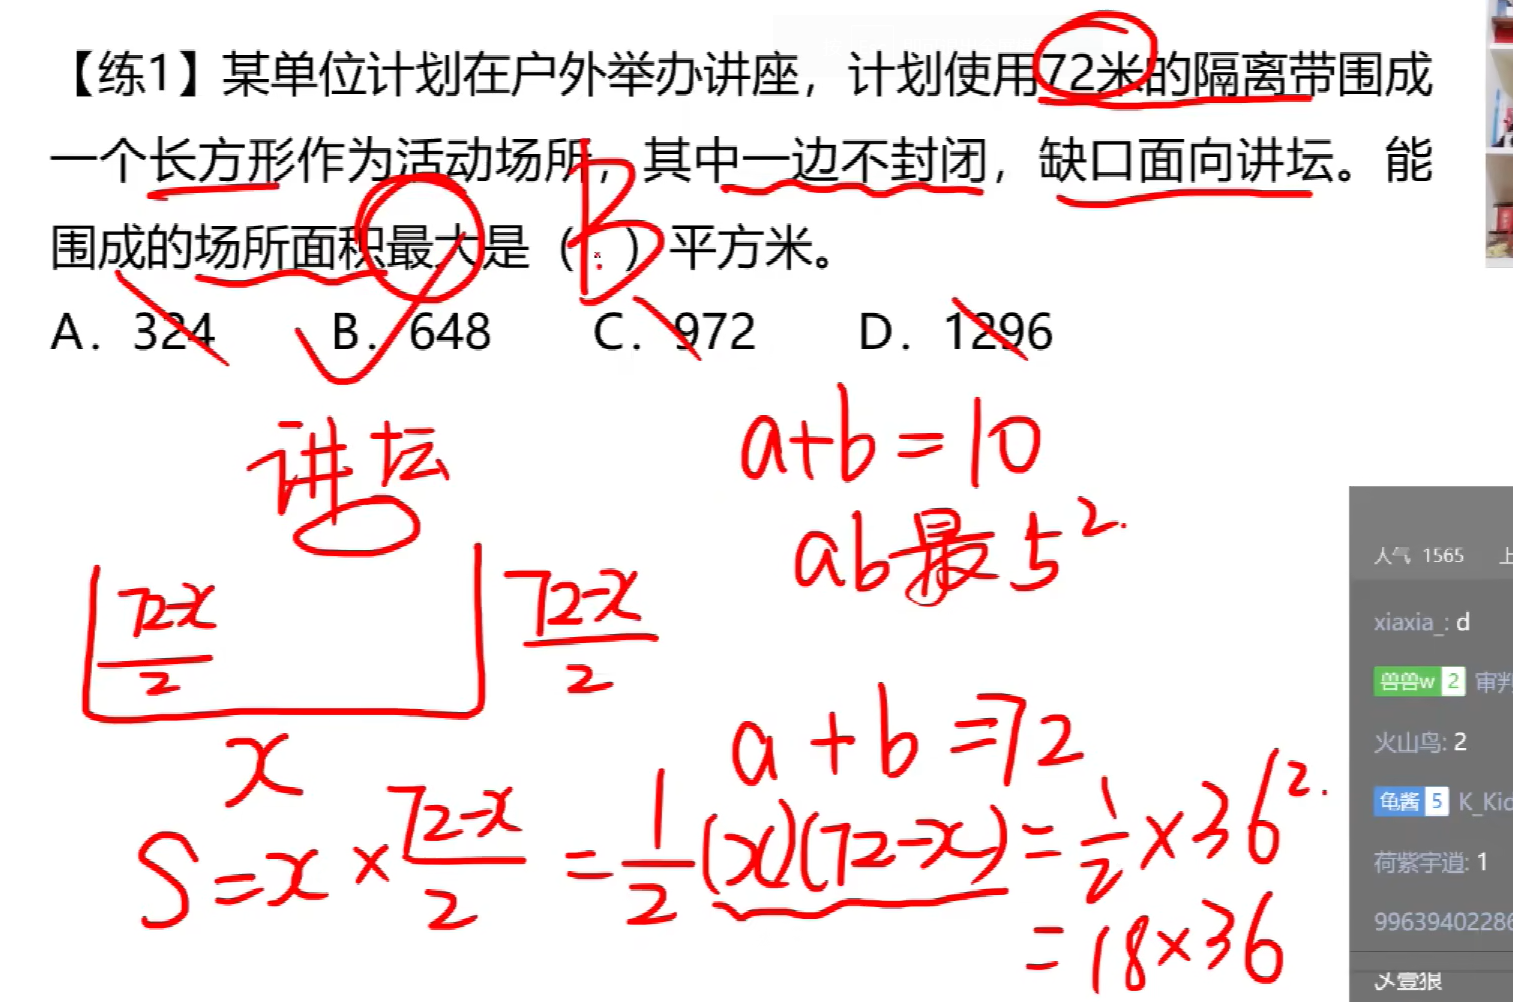 【练1】某单位计划在户外举办讲座，计划使用72米的隔离带围成
一个长方形作为活动场所，其中一边不封闭，缺口面向讲坛。能
围成的场所面积最大是（B）平方米。
A．324 B．648 C．972 D．1296
讲坛
a+b=10
ab最5².
72-x/2
72-x/2
x
a+b=72
S=x×72-x/2=1/2(x)(72-x)=1/2×36².
=18×36
人气 1565 上
xiaxia_: d
兽兽w 2 审判
火山鸟: 2
龟酱 5 K_Kid
荷紫宇逍: 1
99639402286